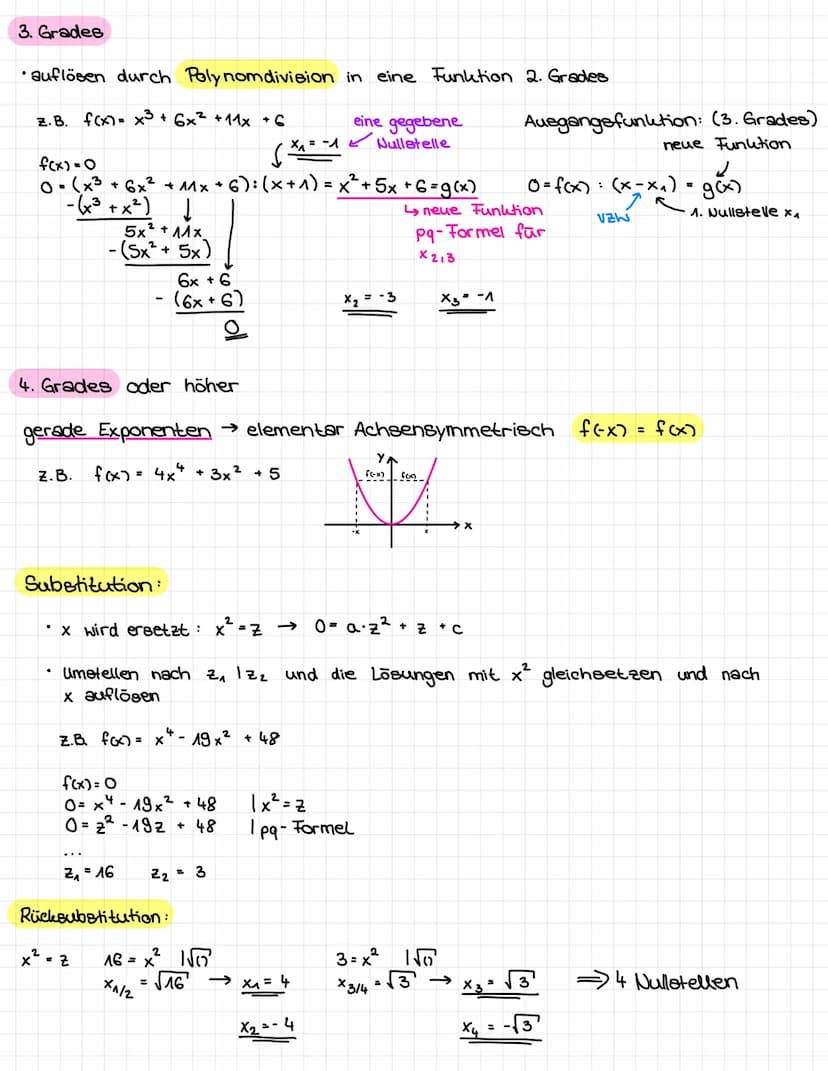 3. Grades
• auflösen durch Polynomdivision in eine Funktion 2. Grades
z.B. f(x) = x³ + 6x² + 11x + 6
eine gegebene
Nullstelle
x₁ = -1
Ausgangsfunktion: (3. Grades)
neue Funktion
f(x) = 0
0 = (x³ + 6x² + 11x + 6) : (x + 1) = x² + 5x + 6 = g(x)
0 = f(x) : (x - x₁) = g(x)
-(x³ + x²)
↳ neue Funktion
VZW
1. Nullstelle x₁
5x² + 11x
pq-Formel für
-(5x² + 5x)
x₂,₃
6x + 6
- (6x + 6)
x₂ = -3 x₃ = -1
0
4. Grades oder höher
gerade Exponenten → elementar Achsensymmetrisch f(-x) = f(x)
z.B. f(x) = 4x⁴ + 3x² + 5
y
f(-x) f(x)
x
-x x
Substitution:
• x wird ersetzt : x² = z → 0 = a·z² + z + c
• Umstellen nach z₁ | z₂ und die Lösungen mit x² gleichsetzen und nach
x auflösen
z.B. f(x) = x⁴ - 19x² + 48
f(x) = 0
0 = x⁴ - 19x² + 48 | x² = z
0 = z² - 19z + 48 | pq-Formel
...
z₁ = 16 z₂ = 3
Rücksubstitution:
x² = z 16 = x² |√() 3 = x² |√()
x₁/₂ = √16 → x₁ = 4 x₃/₄ = √3 → x₃ = √3 ⇒ 4 Nullstellen
x₂ = - 4 x₄ = -√3